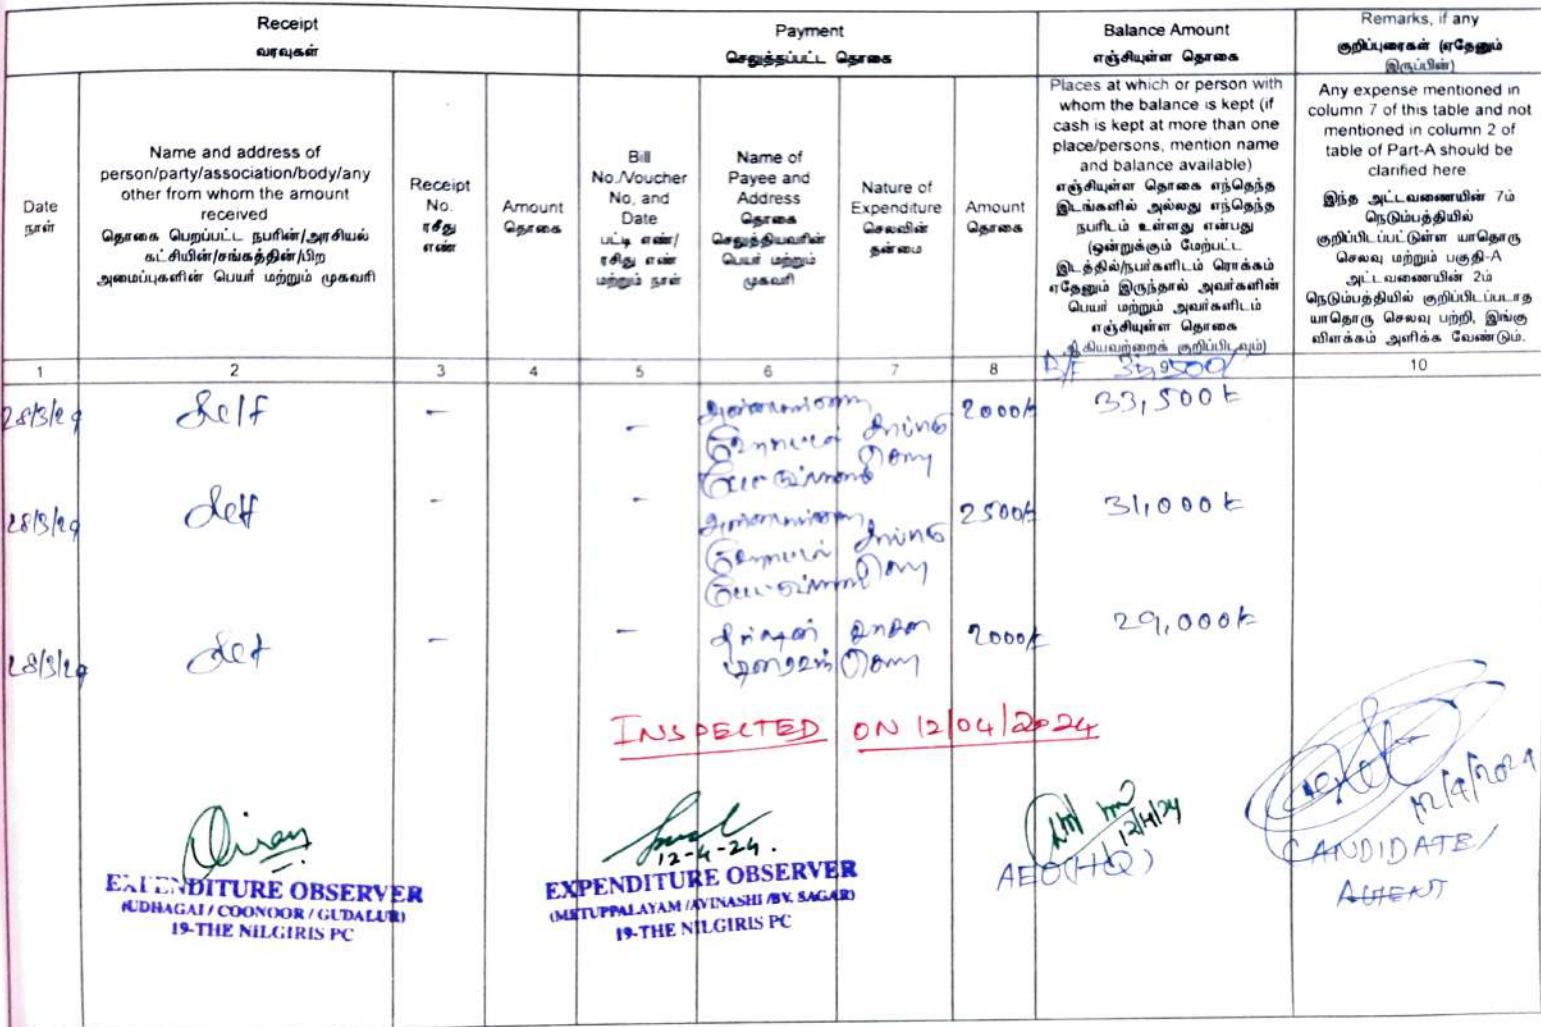 Receipt
வரவுகள்
Payment
செலுத்தப்பட்ட தொகை
Balance Amount
எஞ்சியுள்ள தொகை
Remarks, if any
குறிப்புரைகள் (ஏதேனும்
இருப்பின்)
Date
நாள்
Name and address of
person/party/association/body/any
other from whom the amount
received
தொகை பெறப்பட்ட நபரின்/அரசியல்
கட்சியின்/சங்கத்தின்/பிற
அமைப்புகளின் பெயர் மற்றும் முகவரி
Receipt
No.
ரசீது
எண்
Amount
தொகை
Bill
No./Voucher
No, and
Date
பட்டி எண்/
ரசிது எண்
மற்றும் நாள்
Name of
Payee and
Address
தொகை
செலுத்தியவரின்
பெயர் மற்றும்
முகவரி
Nature of
Expenditure
செலவின்
தன்மை
Amount
தொகை
Places at which or person with
whom the balance is kept (if
cash is kept at more than one
place/persons, mention name
and balance available)
எஞ்சியுள்ள தொகை எந்தெந்த
இடங்களில் அல்லது எந்தெந்த
நபரிடம் உள்ளது என்பது
(ஒன்றுக்கும் மேற்பட்ட
இடத்தில்/நபர்களிடம் ரொக்கம்
ஏதேனும் இருந்தால் அவர்களின்
பெயர் மற்றும் அவர்களிடம்
எஞ்சியுள்ள தொகை
ஆகியவற்றைக் குறிப்பிடவும்)
Any expense mentioned in
column 7 of this table and not
mentioned in column 2 of
table of Part-A should be
clarified here
இந்த அட்டவணையின் 7ம்
நெடும்பத்தியில்
குறிப்பிடப்பட்டுள்ள யாதொரு
செலவு மற்றும் பகுதி-A
அட்டவணையின் 2ம்
நெடும்பத்தியில் குறிப்பிடப்படாத
யாதொரு செலவு பற்றி, இங்கு
விளக்கம் அளிக்க வேண்டும்.
1 2 3 4 5 6 7 8 9 10
B/F
28/3/24 Self - - சாப்பாடு செலவு 2000/- 33,500/-
28/3/24 Self - - சாப்பாடு செலவு 2500/- 31,000/-
28/3/24 Self - - செலவு 2000/- 29,000/-
INSPECTED ON 12/04/2024
12-4-24.
12/4/24
12/4/2024
EXPENDITURE OBSERVER
(UDHAGAI / COONOOR / GUDALUR)
19-THE NILGIRIS PC
EXPENDITURE OBSERVER
(METUPPALAYAM /AVINASHI /BV. SAGAR)
19-THE NILGIRIS PC
AEO(HQ)
CANDIDATE/
AGENT